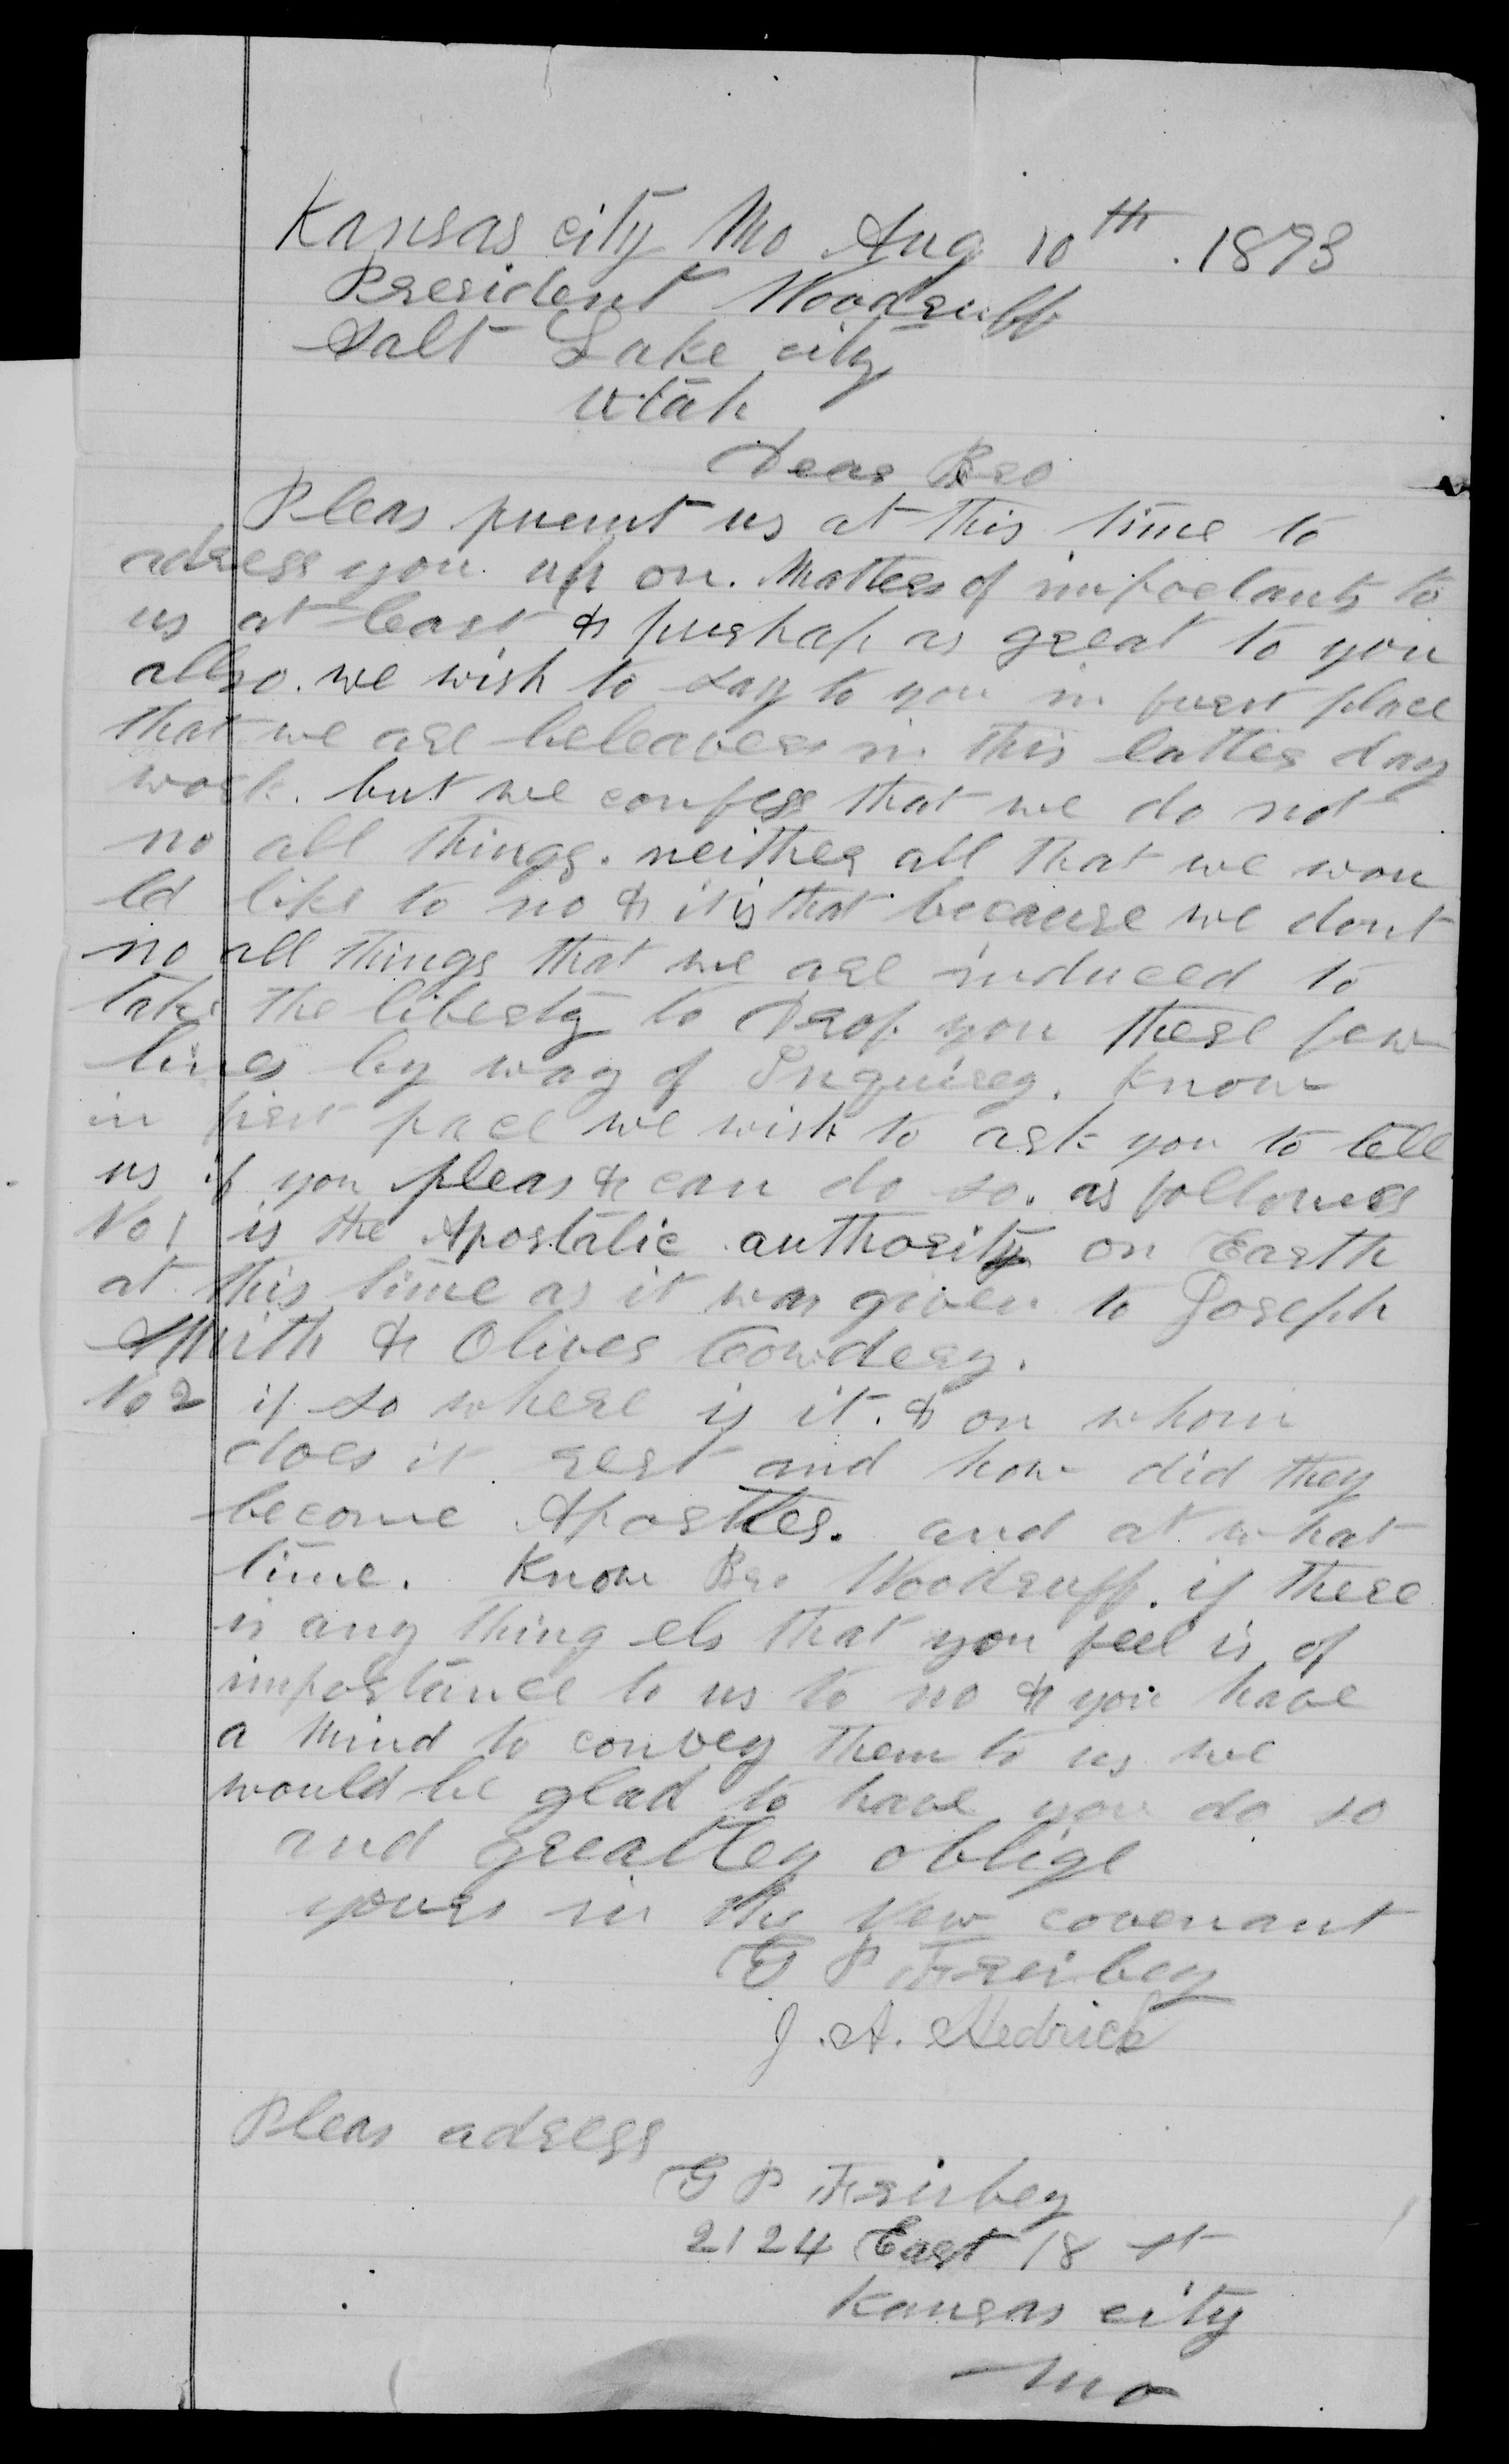 Kansas city Mo Aug 10th. 1893
President Woodruff
Salt Lake city
Utah
Dear Bro
Pleas purmt us at this time to
adress you up on. Matters of importants to
us at least & purhap as great to you
allso. we wish to say to you in furst place
that we are beleavers in this latter day
work. but we confess that we do not
no all things. neither all that we wou
ld like to no & it is that because we dont
no all things that we are induced to
take the liberty to Drop you these few
lines by way of Inquirey. Know
in first pace we wish to ask you to tell
us if you pleas & can do so. as follows
No 1 is the Apostalic authority on Earth
at this time as it was given to Joseph
Smith & Oliver Cowdery.
No 2 if so where is it. & on whom
does it rest and how did they
become Apostles. and at what
time. Know Bro Woodruff. if there
is any thing els that you feel is of
importance to us to no & you have
a mind to convey them to us we
would be glad to have you do so
and greatley oblige
yours in the New covenant
G P Freirbey
J. A. Hedrick
Pleas adress
G P Freirbey
2124 East 18 st
Kansas city
Mo